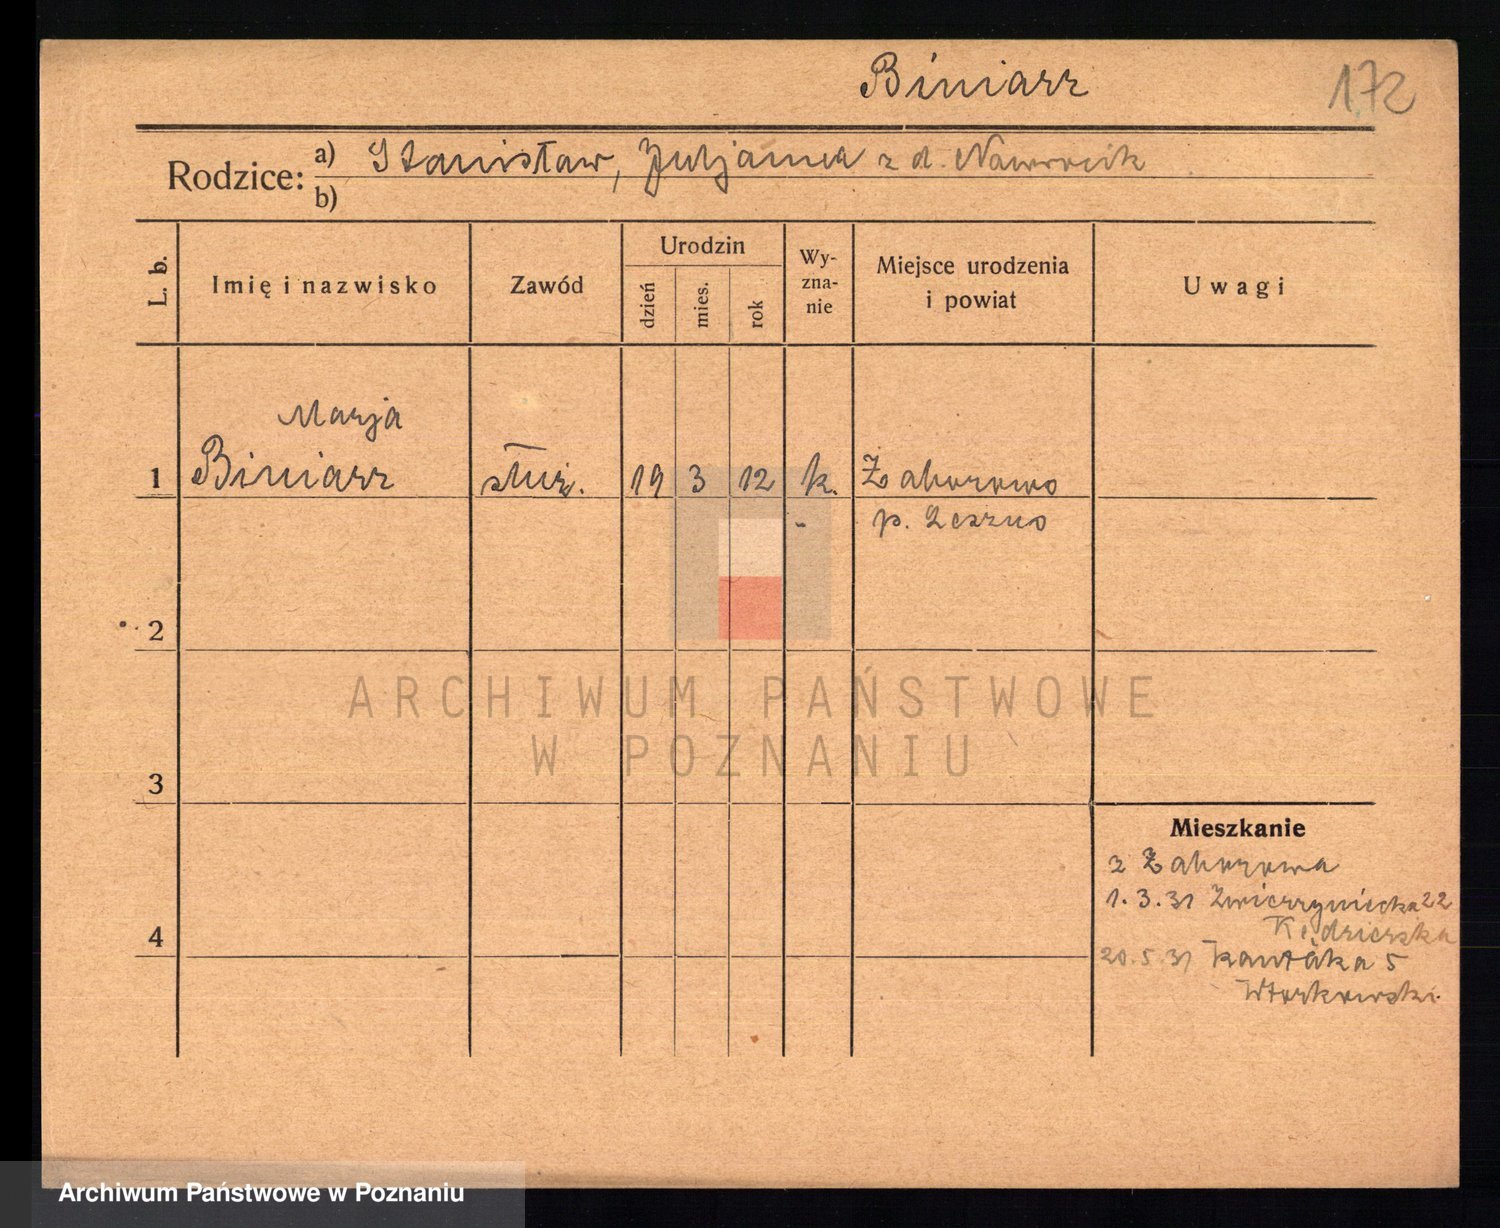 Biniarz
172
Rodzice: a) Stanisław, Juljanna z d. Nawrocik
b)
L. b.
Imię i nazwisko
Zawód
Urodzin
dzień
mies.
rok
Wy-
zna-
nie
Miejsce urodzenia
i powiat
Uwagi
Marja
1 Biniarz służ. 19 3 12 k. Zaborowo
p. Leszno
2
3
4
Mieszkanie
z Zaborowa
1.3.31 Zwierzyniecka 22
Kędzierska
20.5.31 Kantaka 5
Wtorkowski
ARCHIWUM PAŃSTWOWE
W POZNANIU
Archiwum Państwowe w Poznaniu